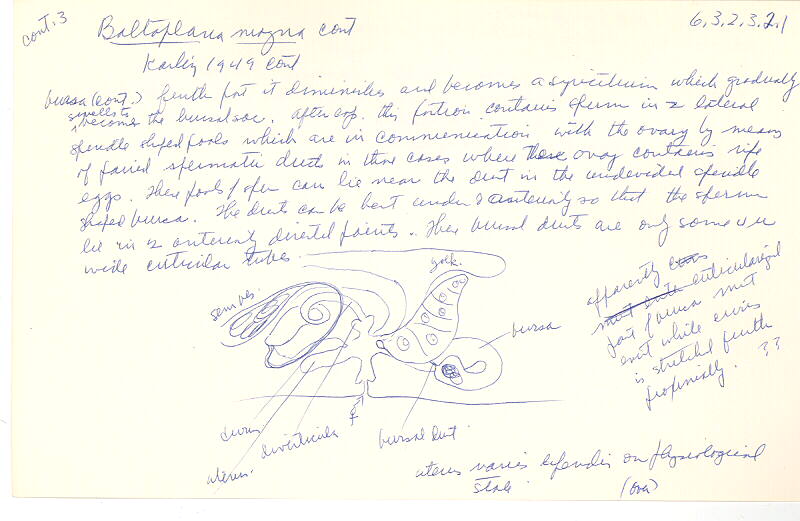 cont. 3
Baltoplana magna cont
6,3,2,3,2,1
Karling 1949 cont
bursa (cont.) further part it diminishes and becomes a syncitium which gradually
swells to becomes the bursal sac. After cop. this portion contains sperm in 2 lateral
spindle shaped pools which are in communication with the ovary by means
of paired spermatic ducts in those cases where these ovary contains ripe
eggs. These pools of sperm can lie near the duct in the undivided spindle
shaped bursa. The ducts can be bent under & anteriorly so that the sperm
lie in 2 anteriorly directed points. These bursal ducts are only some
wide cuticular tubes.
sem ves.
york.
bursa
apparently
cuticularized
part of bursa must
exist while cirrus
is stretched further
proximally. ??
cirrus
diverticula
uterus.
♀
bursal duct
uterus varies depending on physiological
state
(over)